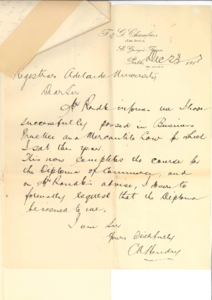 T & G Chambers
St. Georges Terrace
Perth Dec 23
Registrar Adelaide University
Dear Sir
Mr Rendk informs me I have
successfully passed in Business
Practice and Mercantile Law for which
I sat this year.
This now completes the course for
the Diploma of Commerce, and
on Mr advice, I have to
formally request that the Diploma
be issued to me.
I am Sir
Yours faithfully
C A Hendry